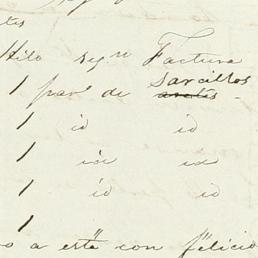 Hilo segn Factura
1 par de Sarcillos aretes.
1 id id
1 id id
1 id id
1
a este con felicid